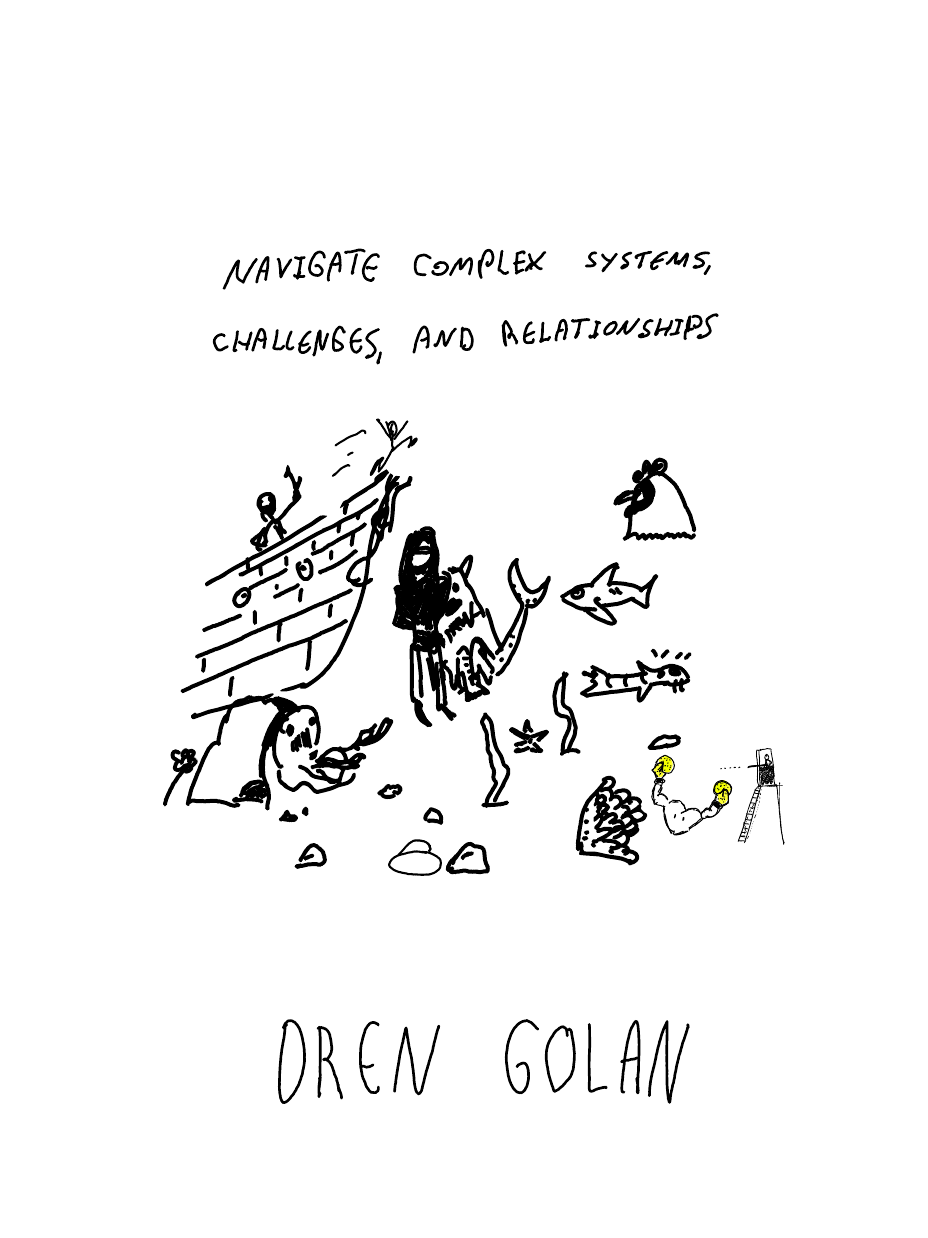 NAVIGATE COMPLEX SYSTEMS,
CHALLENGES, AND RELATIONSHIPS
DREN GOLAN